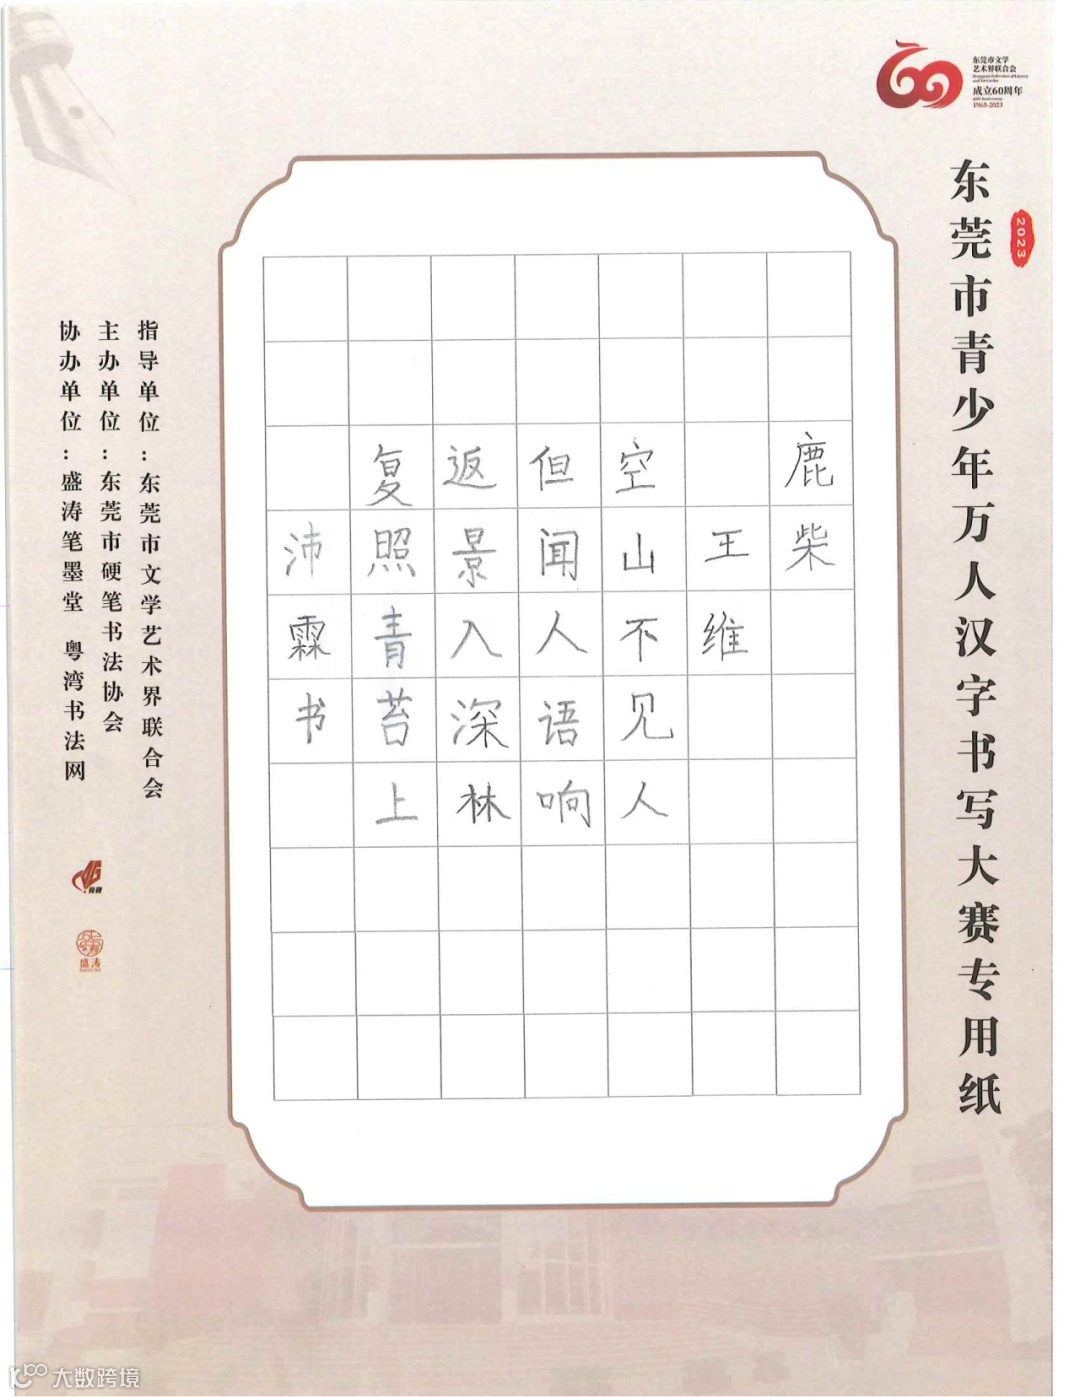 东莞市文学
艺术界联合会
成立60周年
1963-2023
2023
东莞市青少年万人汉字书写大赛专用纸
鹿柴
王维
空山不见人
但闻人语响
返景入深林
复照青苔上
沛霖书
指导单位：东莞市文学艺术界联合会
主办单位：东莞市硬笔书法协会
协办单位：盛涛笔墨堂 粤湾书法网
盛涛
大数跨境